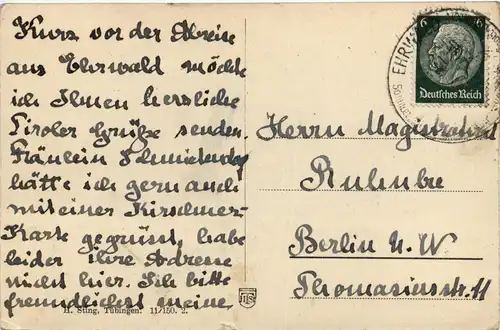 Kurz vor der Abreise
aus Ehrwald möchte
ich Ihnen herzliche
Tiroler Grüße senden.
Fräulein
hätte ich gern auch
mit einer Kirschner-
Karte gegrüsst, habe
leider ihre Adresse
nicht hier. Ich bitte
freundlichst meine
H. Sting, Tübingen. 11/150. 2.
6 6
Deutsches Reich
EHRW
Herrn Magistratsrat
Berlin N. W
Thomasiusstr. 11